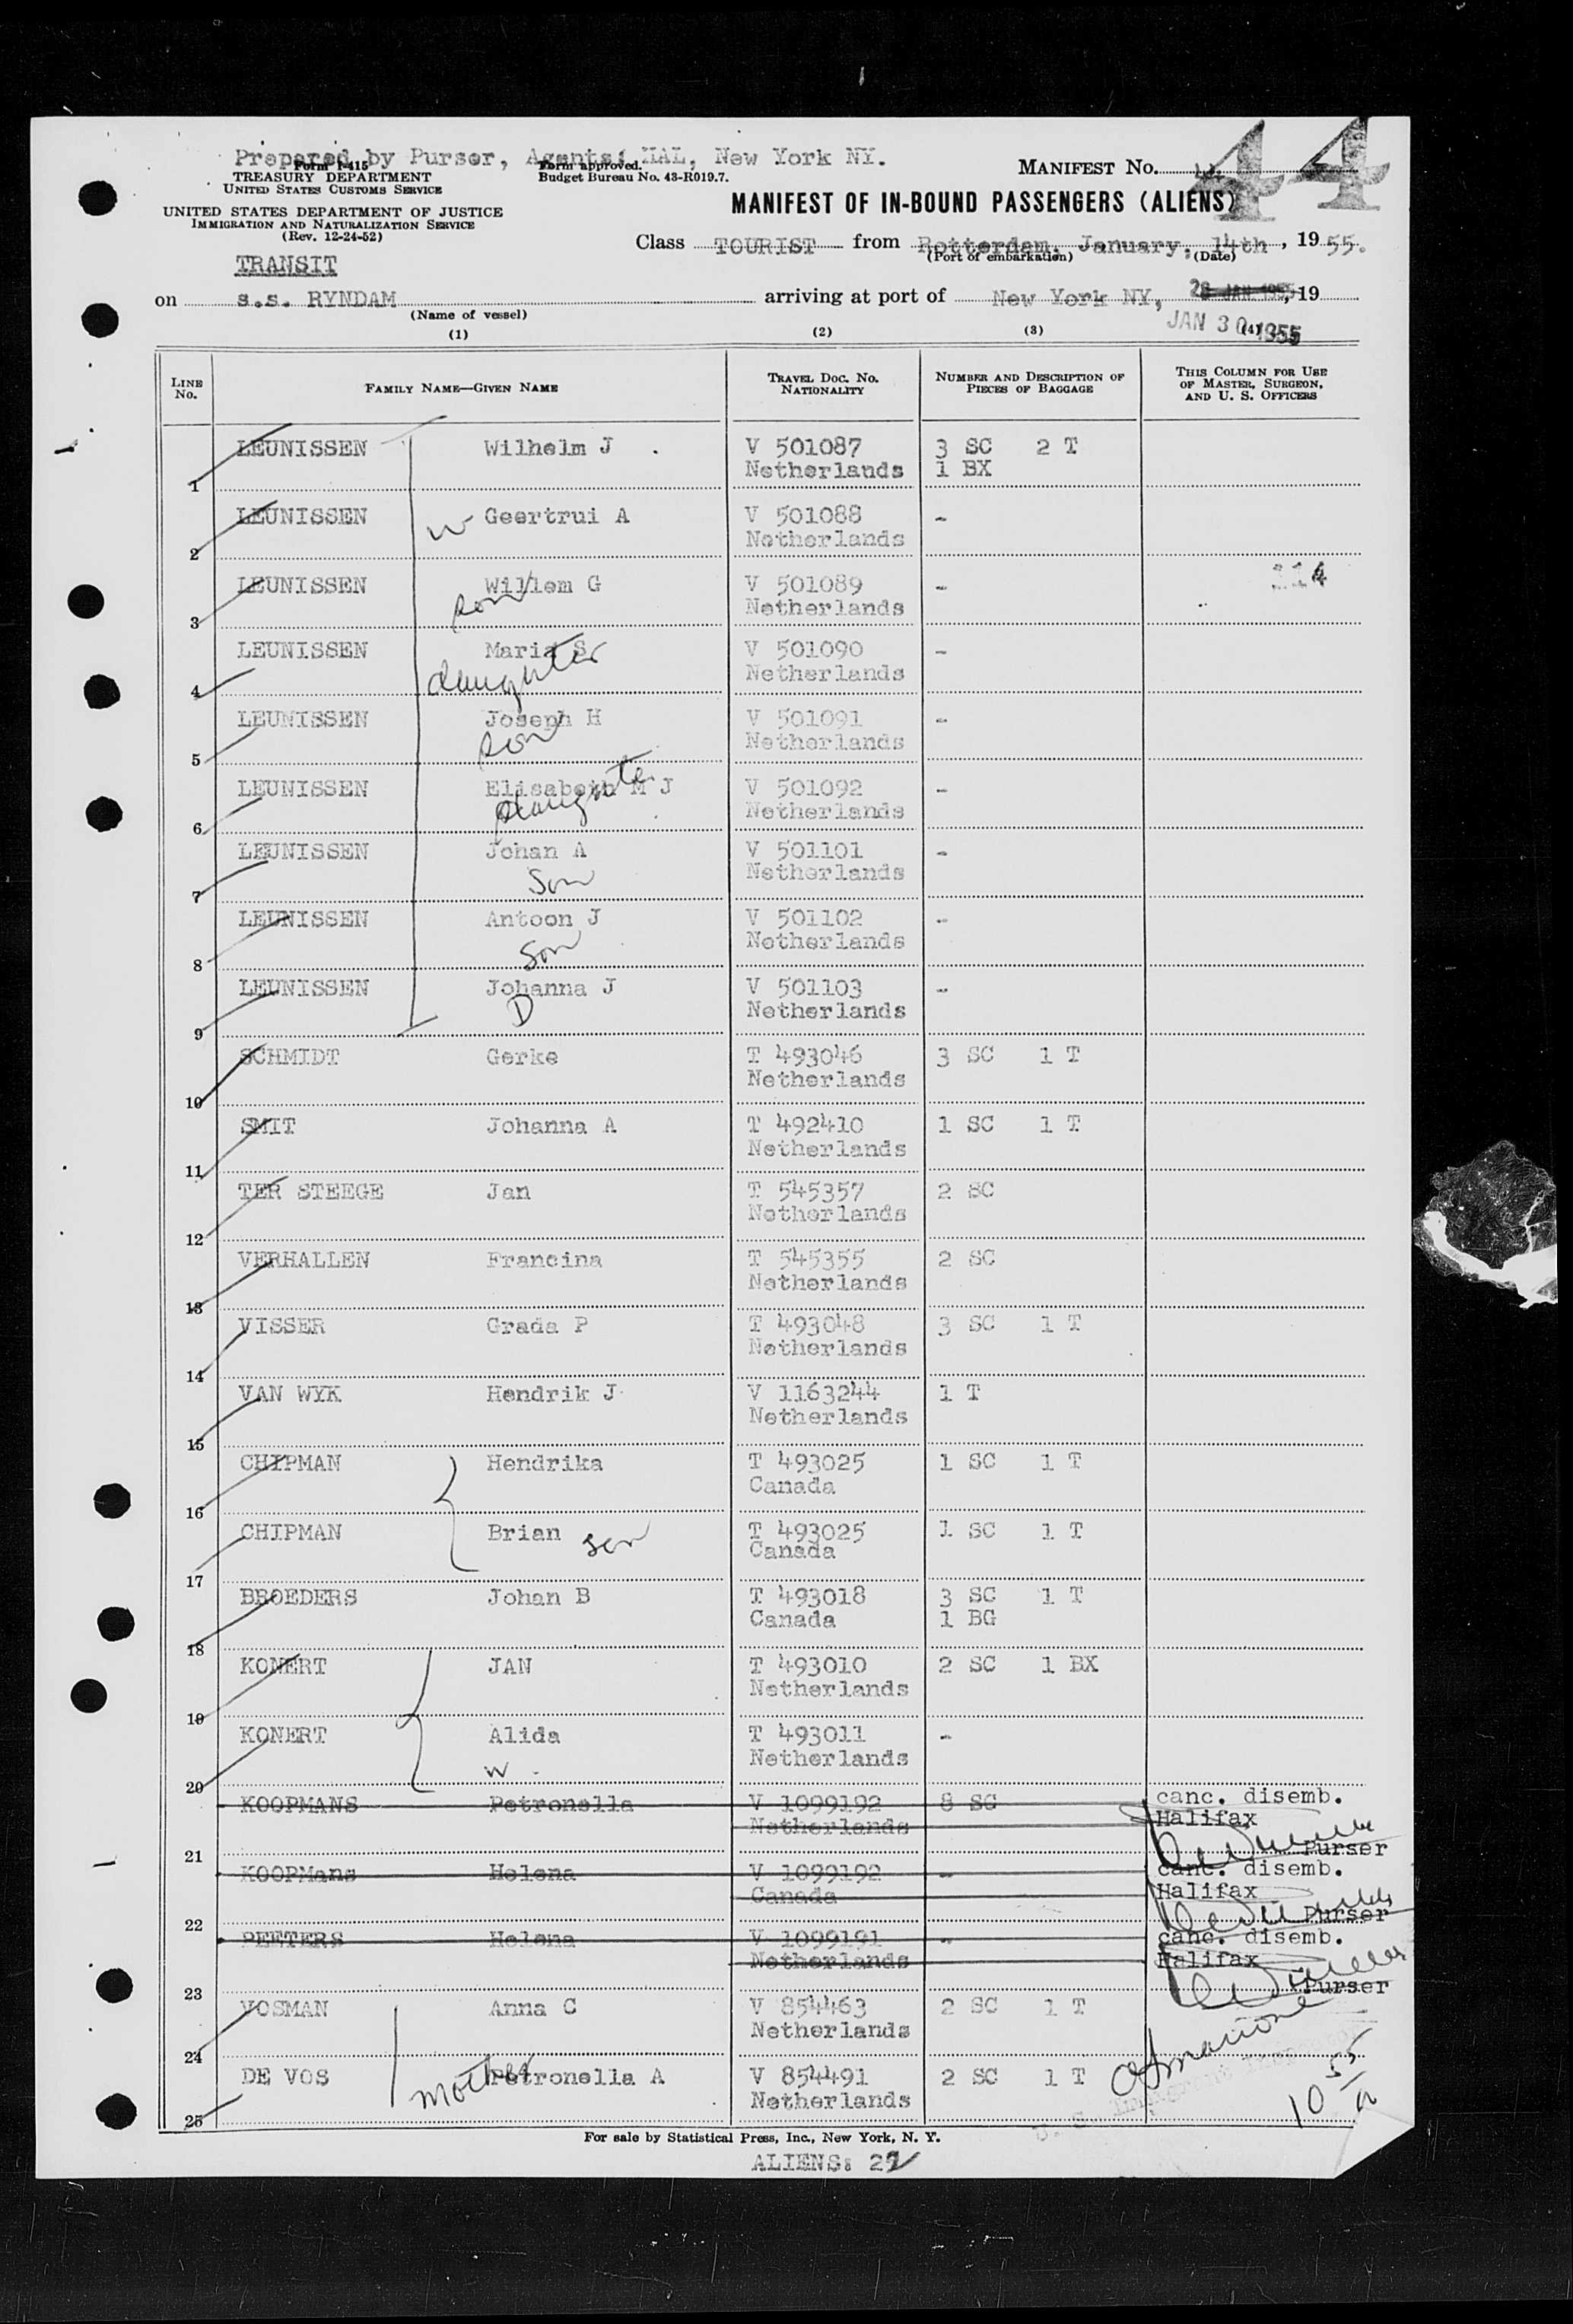 Prepared by Purser, Agents: HAL, New York NY.
Form I-415
TREASURY DEPARTMENT
UNITED STATES CUSTOMS SERVICE
Form approved.
Budget Bureau No. 43-R019.7.
MANIFEST No. 44
44
UNITED STATES DEPARTMENT OF JUSTICE
IMMIGRATION AND NATURALIZATION SERVICE
(Rev. 12-24-52)
MANIFEST OF IN-BOUND PASSENGERS (ALIENS)
Class TOURIST from Rotterdam, January, 14th, 19 55.
(Port of embarkation) (Date)
TRANSIT
on s.s. RYNDAM arriving at port of New York NY, 28 JAN 1955, 19
(Name of vessel)
JAN 30 1955
(1) (2) (3) (4)
LINE No. FAMILY NAME—GIVEN NAME TRAVEL DOC. NO. NATIONALITY NUMBER AND DESCRIPTION OF PIECES OF BAGGAGE THIS COLUMN FOR USE OF MASTER, SURGEON, AND U. S. OFFICERS
LEUNISSEN Wilhelm J . V 501087 3 SC 2 T
Netherlands 1 BX
1
LEUNISSEN w Geertrui A V 501088 -
Netherlands
2
LEUNISSEN Willem G V 501089 - 114
son Netherlands
3
LEUNISSEN Maria S V 501090 -
daughter Netherlands
4
LEUNISSEN Joseph H V 501091 -
son Netherlands
5
LEUNISSEN Elisabeth M J V 501092 -
daughter Netherlands
6
LEUNISSEN Johan A V 501101 -
Son Netherlands
7
LEUNISSEN Antoon J V 501102 -
Son Netherlands
8
LEUNISSEN Johanna J V 501103 -
D Netherlands
9
SCHMIDT Gerke T 493046 3 SC 1 T
Netherlands
10
SMIT Johanna A T 492410 1 SC 1 T
Netherlands
11
TER STEEGE Jan T 545357 2 SC
Netherlands
12
VERHALLEN Francina T 545355 2 SC
Netherlands
13
VISSER Grada P T 493048 3 SC 1 T
Netherlands
14
VAN WYK Hendrik J V 1163244 1 T
Netherlands
15
CHIPMAN Hendrika T 493025 1 SC 1 T
Canada
16
CHIPMAN Brian son T 493025 1 SC 1 T
Canada
17
BROEDERS Johan B T 493018 3 SC 1 T
Canada 1 BG
18
KONERT JAN T 493010 2 SC 1 BX
Netherlands
19
KONERT Alida T 493011 -
w - Netherlands
20
KOOPMANS Petronella V 1099192 8 SC canc. disemb.
Netherlands Halifax
21 Purser
KOOPMans Helena V 1099192 - canc. disemb.
Canada Halifax
22 Purser
PEETERS Helena V 1099191 - canc. disemb.
Netherlands Halifax
23 Purser
VOSMAN Anna C V 854463 2 SC 1 T
Netherlands
24
DE VOS mother Petronella A V 854491 2 SC 1 T
Netherlands
25
10 55
For sale by Statistical Press, Inc., New York, N. Y.
ALIENS: 22